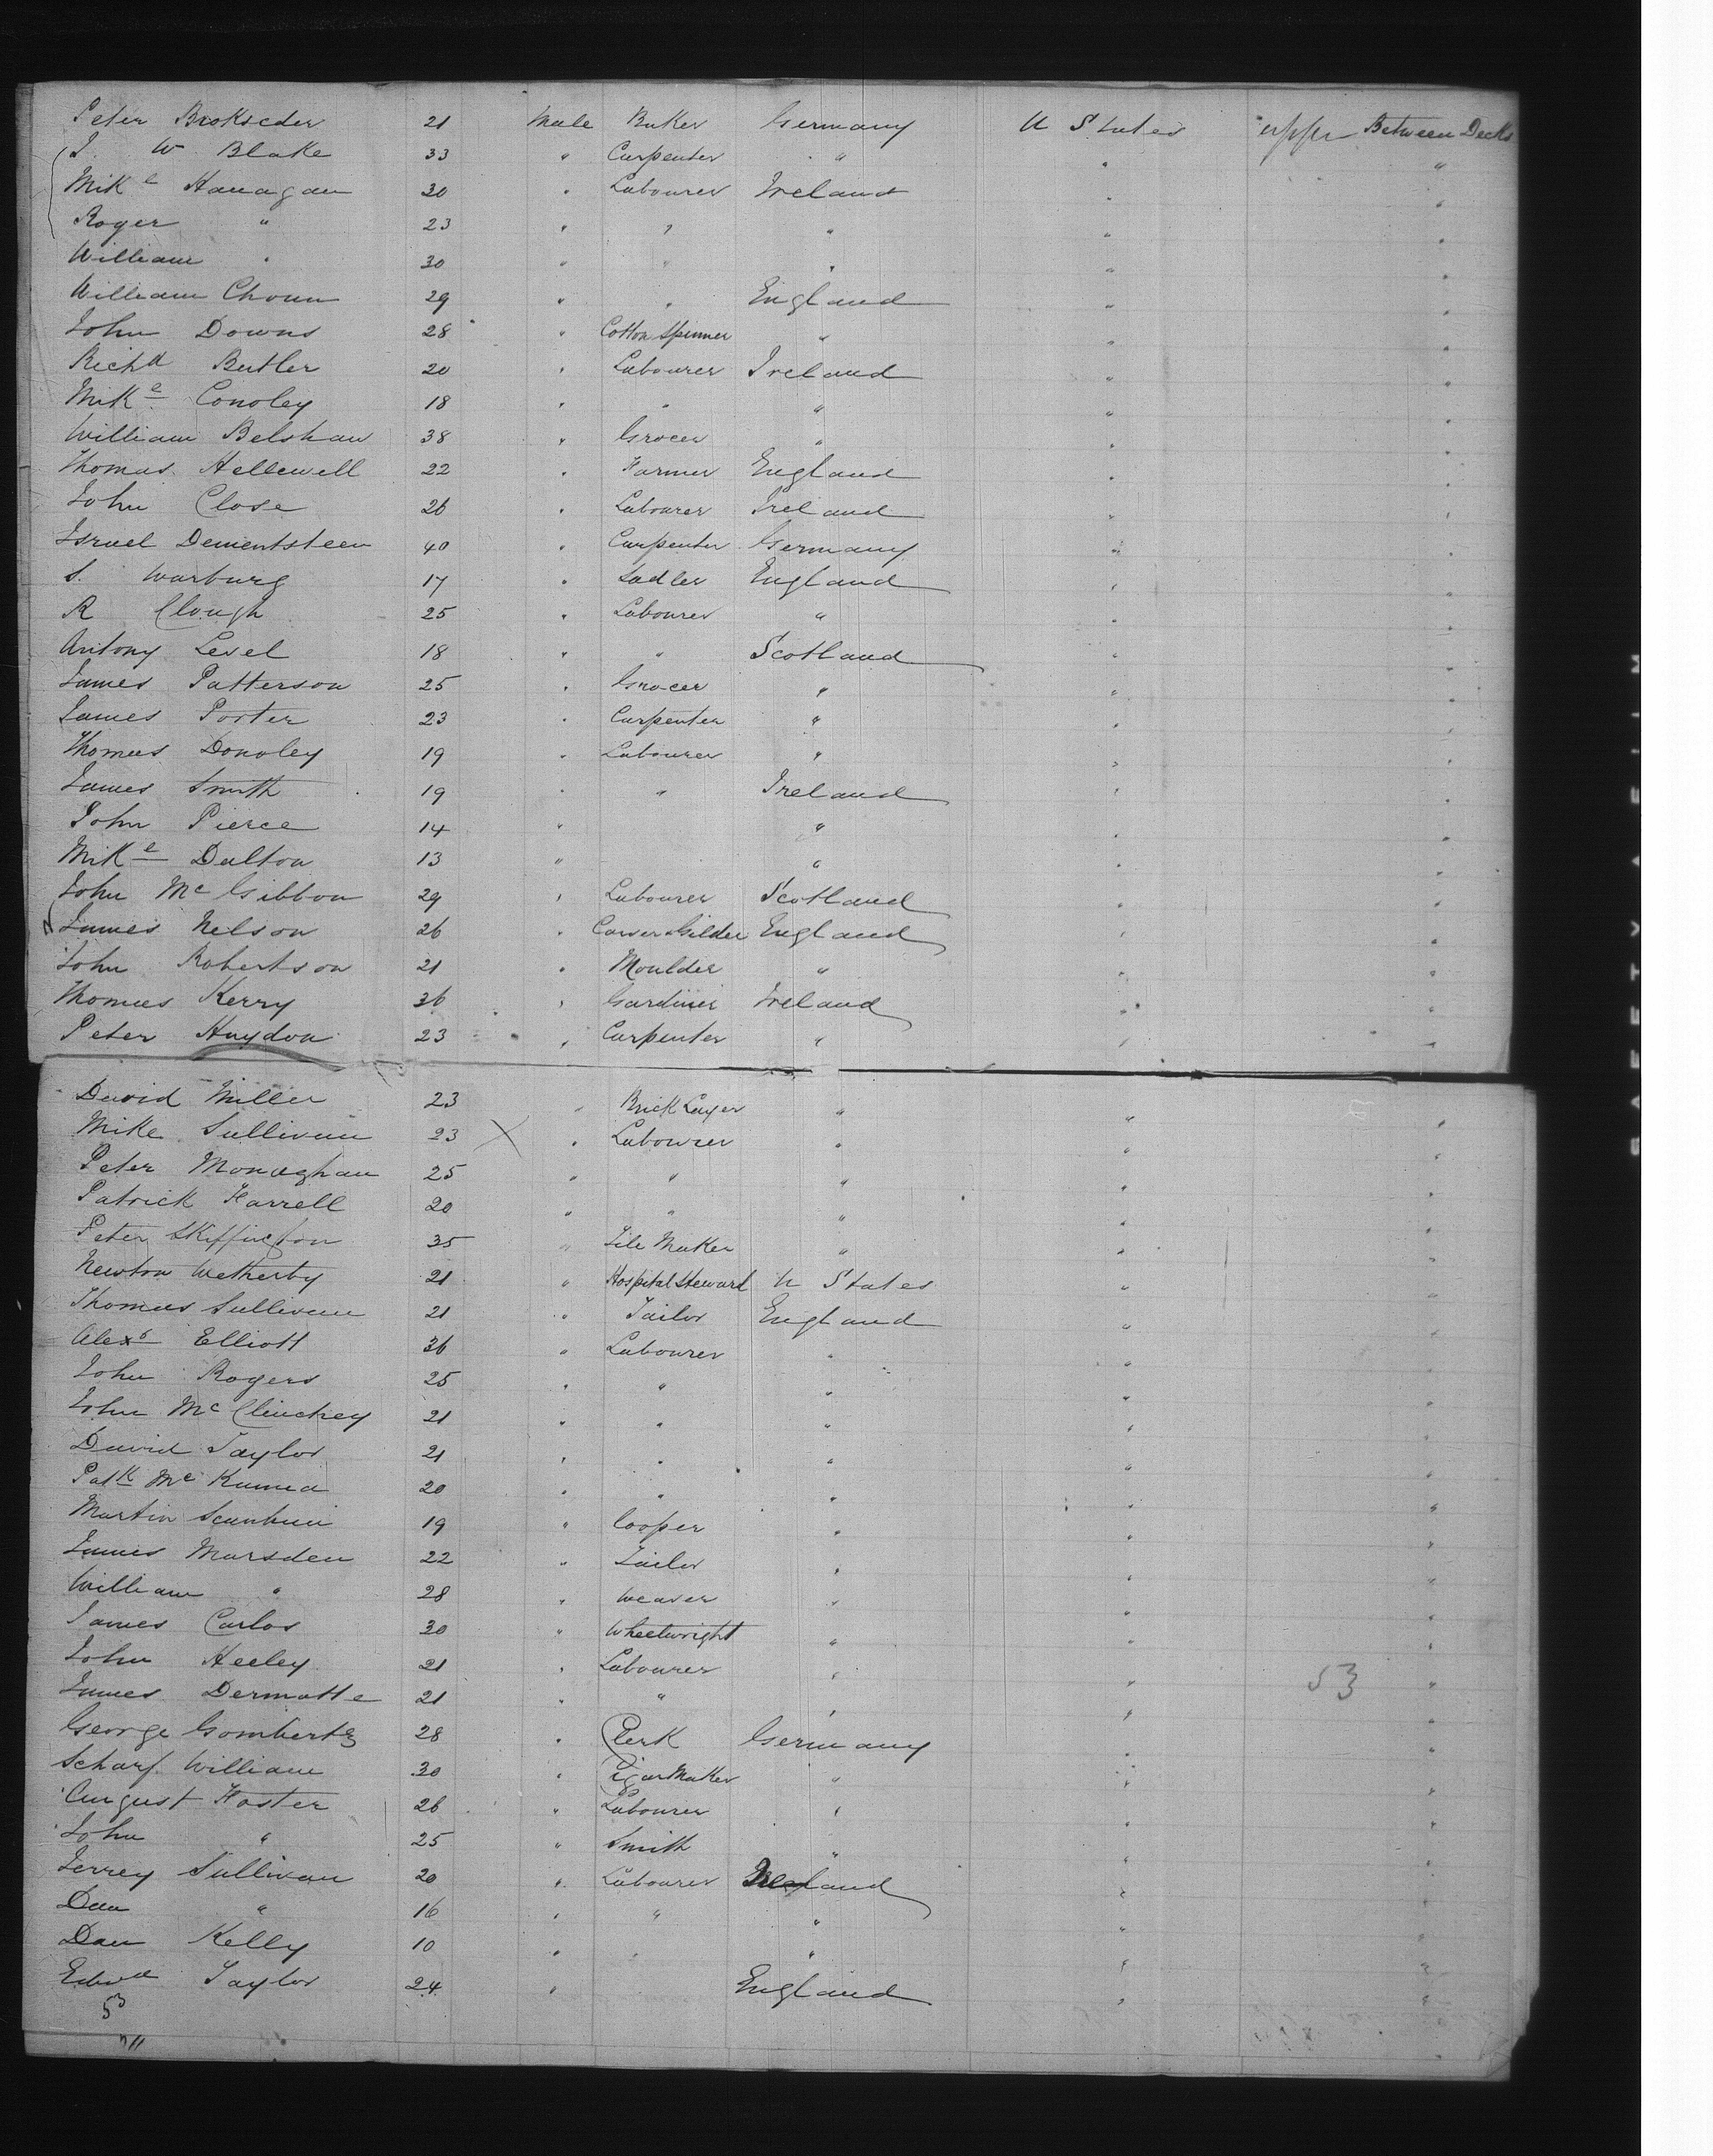 Peter Brokseder 21 Male Baker Germany U States upper Between Decks
J. W Blake 33 " Carpenter " " "
Mike Hanagan 30 " Labourer Ireland " "
Roger " 23 " " " " "
William " 30 " " " " "
William Choun 29 " " England " "
John Downs 28 " Cotton Spinner " " "
Richd Butler 20 " Labourer Ireland " "
Mike Conoley 18 " " " " "
William Belshaw 38 " Grocer " " "
Thomas Hellewell 22 " Farmer England " "
John Close 26 " Labourer Ireland " "
Israel Dementsteen 40 " Carpenter Germany " "
S. Warburg 17 " Sadler England " "
R Clough 25 " Labourer " " "
Antony Level 18 " " Scotland " "
James Patterson 25 " Grocer " " "
James Porter 23 " Carpenter " " "
Thomas Donoley 19 " Labourer " " "
James Smith 19 " " Ireland " "
John Pierce 14 " " " "
Mike Dalton 13 " " " "
John Mc Gibbon 29 " Labourer Scotland " "
James Nelson 26 " Carver Gilder England " "
John Robertson 21 " Moulder " " "
Thomas Kerry 36 " Gardiner Ireland " "
Peter Haydon 23 " Carpenter " " "
David Miller 23 " Brick Layer " " "
Mike Sullivan 23 X " Labourer " " "
Peter Monaghan 25 " " " " "
Patrick Farrell 20 " " " " "
Peter Skiffington 35 " Tile Maker " " "
Newton Wetherby 21 " Hospital Steward U States " "
Thomas Sullivan 21 " Tailor England " "
Alexr Elliott 36 " Labourer " " "
John Rogers 25 " " " " "
John Mc Clinchey 21 " " " " "
David Taylor 21 " " " " "
Patk Mc Kunna 20 " " " " "
Martin 19 " Cooper " " "
James Marsden 22 " Tailor " " "
William " 28 " Weaver " " "
James Carlos 30 " Wheelwright " " "
John Heeley 21 " Labourer " " "
53
James Dermotte 21 " " " " "
George Gombertz 28 " Clerk Germany " "
Scharf William 30 " Cigar Maker " " "
August Foster 26 " Labourer " " "
John " 25 " Smith " " "
Jerrey Sullivan 20 " Labourer Ireland " "
Dan " 16 " " " " "
Dan Kelly 10 " " " " "
Edwd Taylor 24 " England " "
53